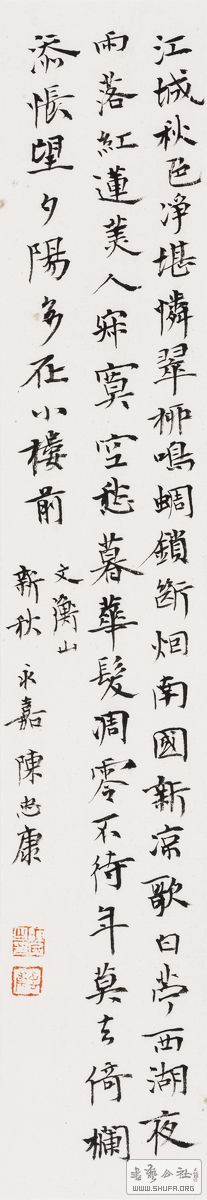 江城秋色净堪憐翠柳鳴蜩鎖斷烟南國新凉歌白苧西湖夜
雨落紅蓮美人寂寞空愁暮華髮凋零不待年莫去倚欄
添悵望夕陽多在小樓前
文衡山
新秋 永嘉陳忠康
书艺公社
WWW.SHUFA.ORG